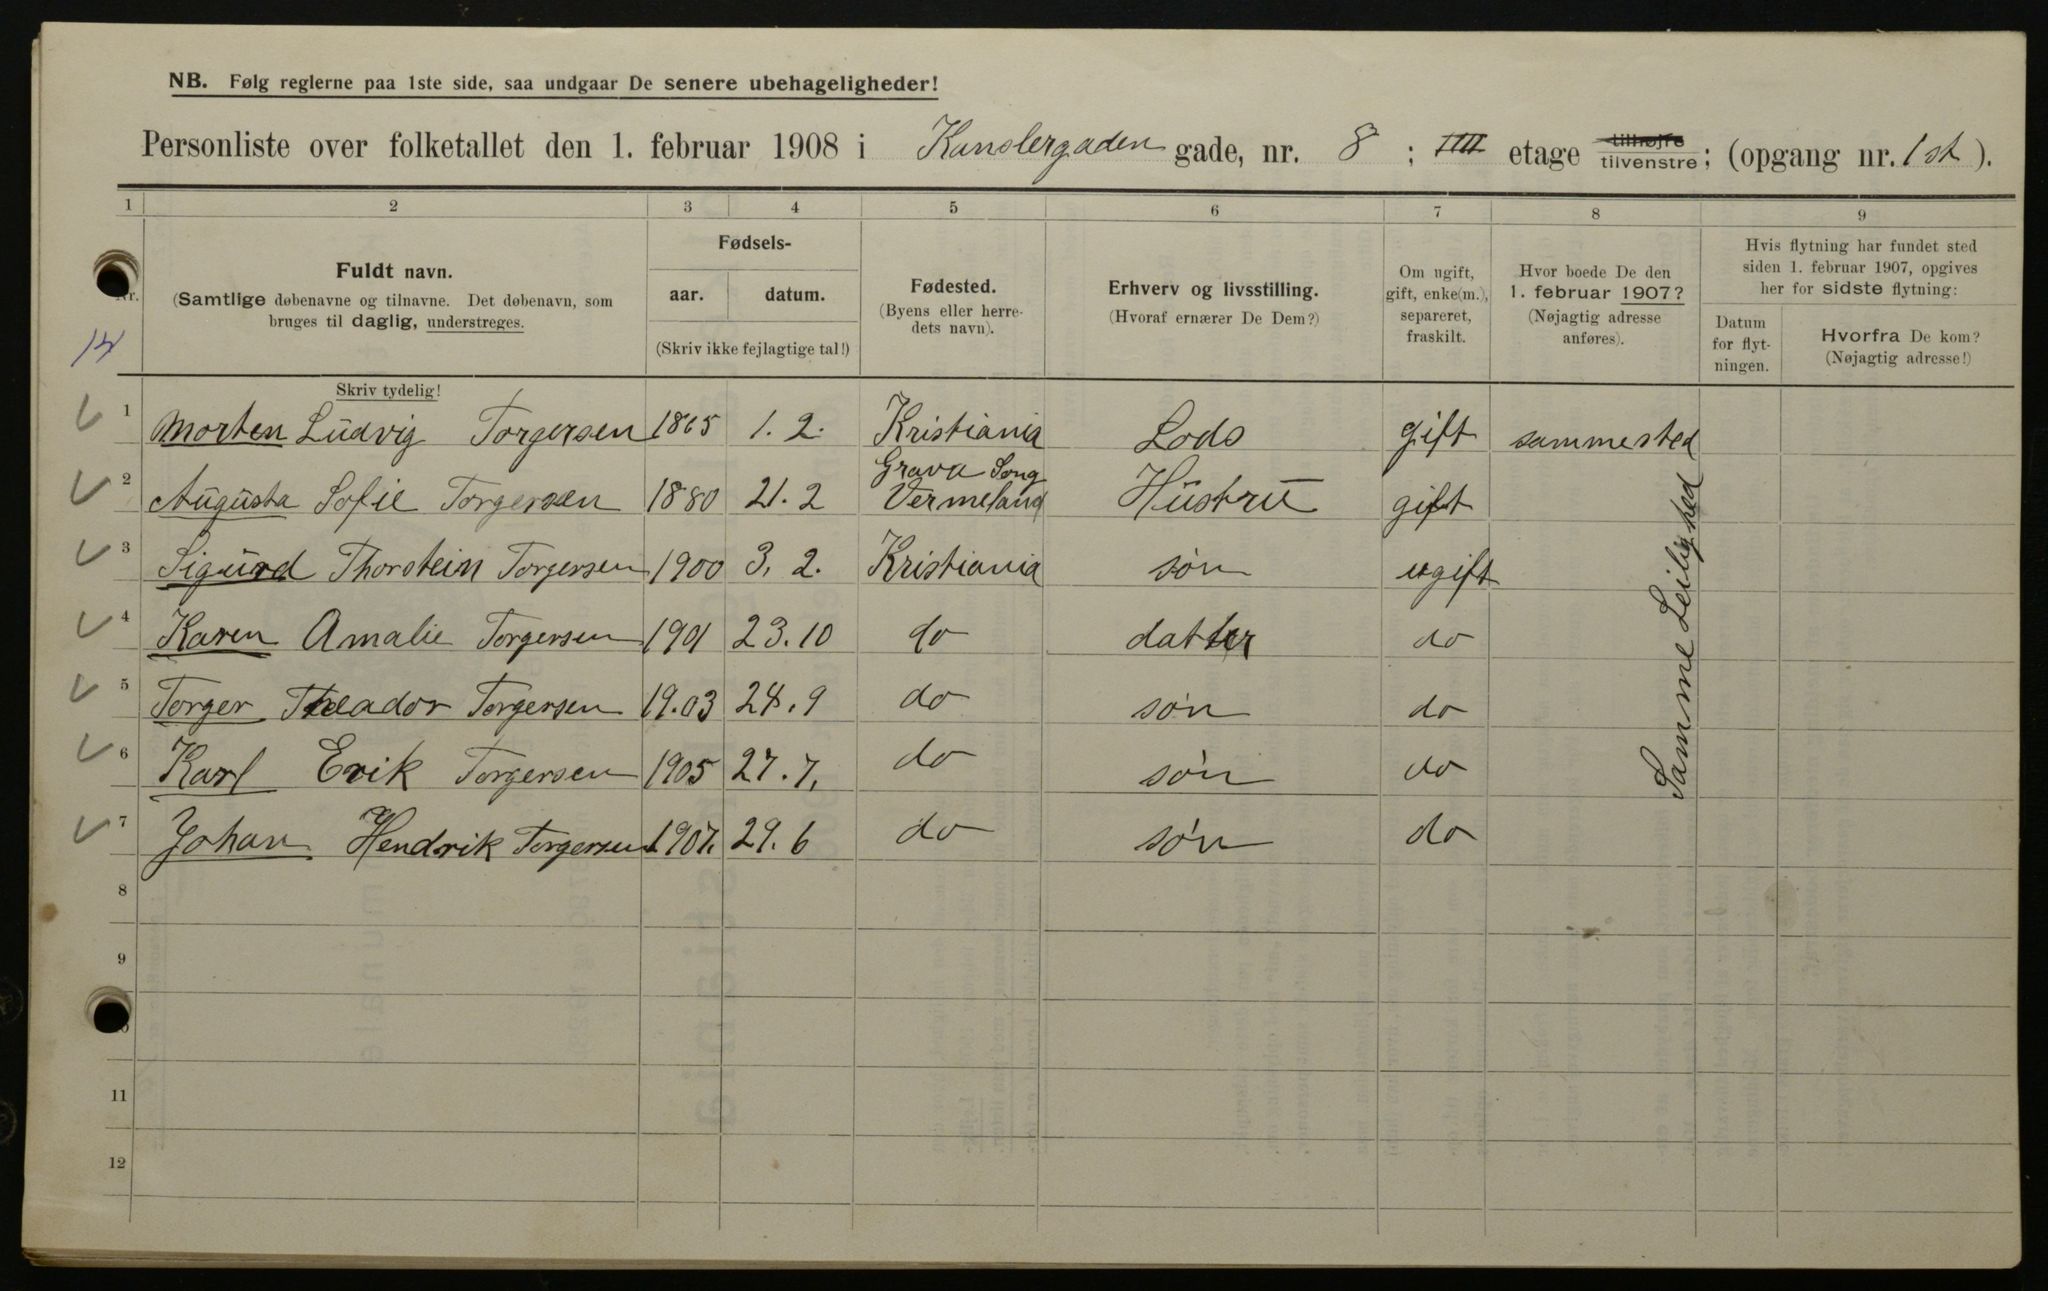 NB. Følg reglerne paa 1ste side, saa undgaar De senere ubehageligheder!
Personliste over folketallet den 1. februar 1908 i Kanslergaden gade, nr. 8 ; IIII etage tilhøjre tilvenstre; (opgang nr. 1 st ).
1 2 3 4 5 6 7 8 9
Nr.
Fuldt navn.
(Samtlige døbenavne og tilnavne. Det døbenavn, som
bruges til daglig, understreges.
Skriv tydelig!
Fødsels-
aar. datum.
(Skriv ikke fejlagtige tal!)
Fødested.
(Byens eller herre-
dets navn).
Erhverv og livsstilling.
(Hvoraf ernærer De Dem?)
Om ugift,
gift, enke(m.),
separeret,
fraskilt.
Hvor boede De den
1. februar 1907?
(Nøjagtig adresse
anføres).
Hvis flytning har fundet sted
siden 1. februar 1907, opgives
her for sidste flytning:
Datum
for flyt-
ningen.
Hvorfra De kom?
(Nøjagtig adresse!)
1 Morten Ludvig Torgersen 1865 1. 2. Kristiania Lods gift sammested
2 Augusta Sofie Torgersen 1880 21. 2 Grava Song Vermeland Hustru gift
3 Sigurd Thorstein Torgersen 1900 3. 2. Kristiania søn ugift
4 Karen Amalie Torgersen 1901 23.10 do datter do
5 Torger Theador Torgersen 19.03 24.9 do søn do
6 Karl Erik Torgersen 1905 27.7. do søn do
7 Johan Hendrik Torgersen 1907. 29.6 do søn do
Samme Leilighed
8
9
11
12